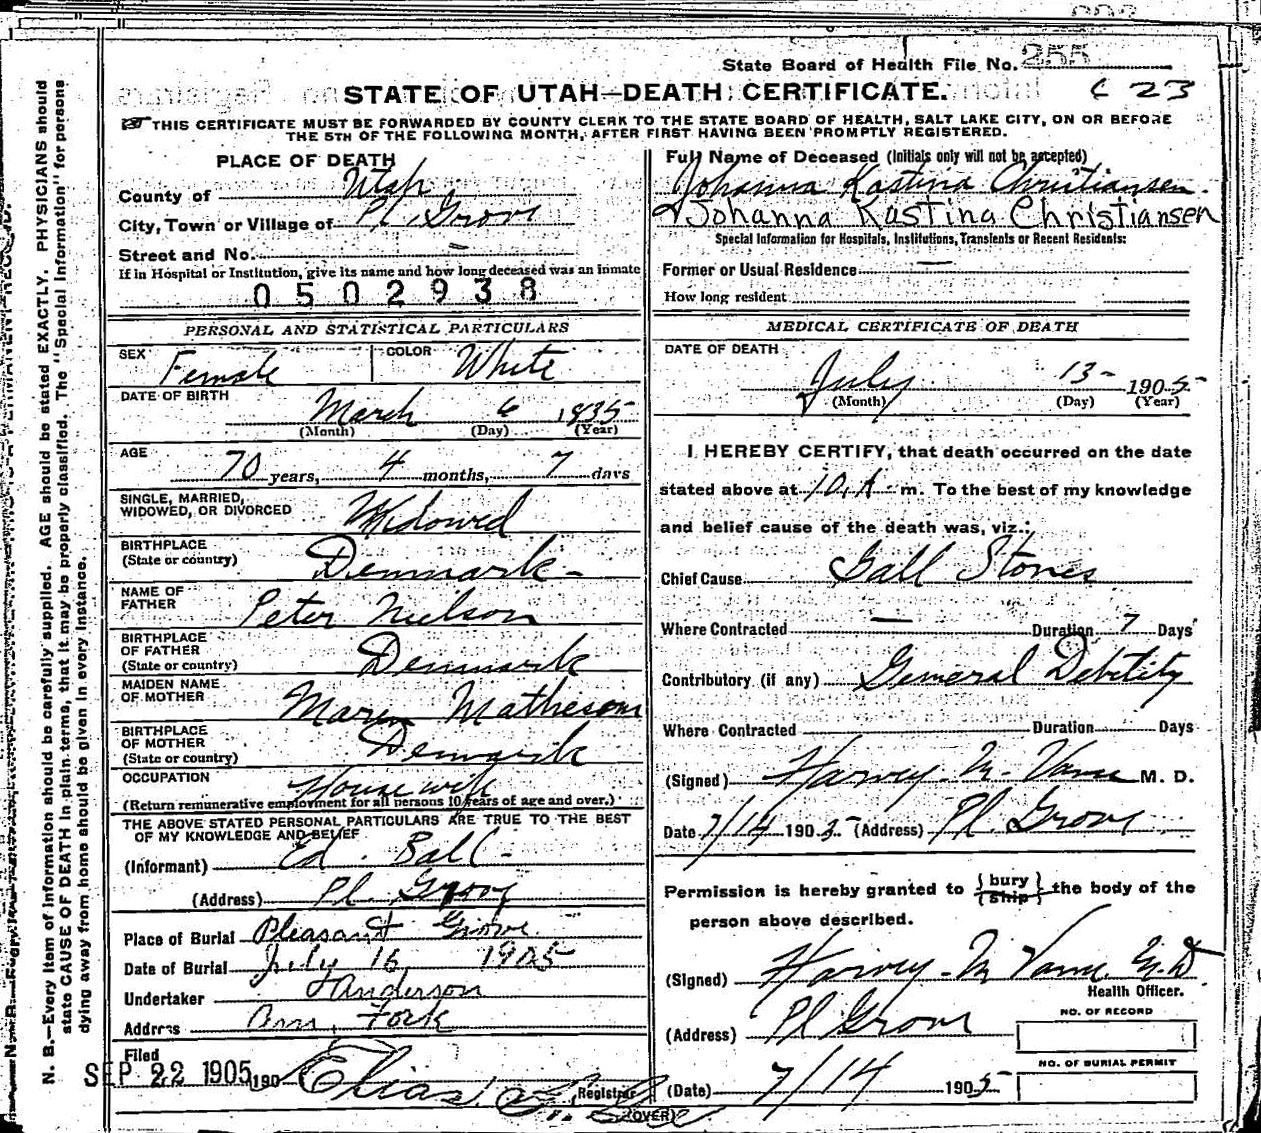 State Board of Health File No. 255
C 23
STATE OF UTAH—DEATH CERTIFICATE.
THIS CERTIFICATE MUST BE FORWARDED BY COUNTY CLERK TO THE STATE BOARD OF HEALTH, SALT LAKE CITY, ON OR BEFORE
THE 5TH OF THE FOLLOWING MONTH, AFTER FIRST HAVING BEEN PROMPTLY REGISTERED.
N. B.—Every item of information should be carefully supplied. AGE should be stated EXACTLY. PHYSICIANS should
state CAUSE OF DEATH in plain terms, that it may be properly classified. The "Special Information" for persons
dying away from home should be given in every instance.
PLACE OF DEATH
County of Utah
City, Town or Village of Pl. Grove
Street and No. –
If in Hospital or Institution, give its name and how long deceased was an inmate
0502938
PERSONAL AND STATISTICAL PARTICULARS
SEX Female COLOR White
DATE OF BIRTH
March 6 1835
(Month) (Day) (Year)
AGE
70 years, 4 months, 7 days
SINGLE, MARRIED,
WIDOWED, OR DIVORCED Widowed
BIRTHPLACE
(State or country) Denmark -
NAME OF
FATHER Peter Nielson
BIRTHPLACE
OF FATHER
(State or country) Denmark
MAIDEN NAME
OF MOTHER Maren Matheson
BIRTHPLACE
OF MOTHER
(State or country) Denmark
OCCUPATION House wife
(Return remunerative employment for all persons 10 years of age and over.)
THE ABOVE STATED PERSONAL PARTICULARS ARE TRUE TO THE BEST
OF MY KNOWLEDGE AND BELIEF
(Informant) Ed. Ball -
(Address) Pl Grove
Place of Burial Pleasant Grove
Date of Burial July 16, 1905
Undertaker Anderson
Address Am. Fork
Filed
SEP 22 1905 190
Elias Registrar
(OVER)
Full Name of Deceased (Initials only will not be accepted)
Johanna Kastina Christiansen.
Johanna Kastina Christiansen
Special Information for Hospitals, Institutions, Transients or Recent Residents:
Former or Usual Residence —
How long resident
MEDICAL CERTIFICATE OF DEATH
DATE OF DEATH
July 13 - 1905
(Month) (Day) (Year)
I HEREBY CERTIFY, that death occurred on the date
stated above at 10 A. m. To the best of my knowledge
and belief cause of the death was, viz.:
Chief Cause Gall Stones
Where Contracted — Duration 7 Days
Contributory (if any) General Debility
Where Contracted Duration Days
(Signed) Harvey M. Vance M. D.
Date 7/14 1905 (Address) Pl. Grove
Permission is hereby granted to {bury / ship} the body of the
person above described.
(Signed) Harvey M Vance M.D
Health Officer.
(Address) Pl Grove
NO. OF RECORD
NO. OF BURIAL PERMIT
(Date) 7/14 1905